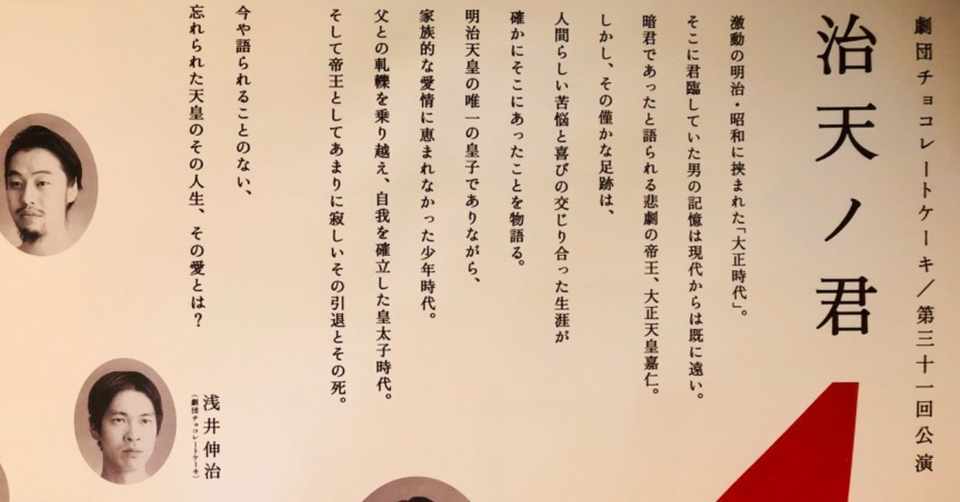 劇団チョコレートケーキ／第三十一回公演
治天ノ君
激動の明治・昭和に挟まれた「大正時代」。
そこに君臨していた男の記憶は現代からは既に遠い。
暗君であったと語られる悲劇の帝王、大正天皇嘉仁。
しかし、その僅かな足跡は、
人間らしい苦悩と喜びの交じり合った生涯が
確かにそこにあったことを物語る。
明治天皇の唯一の皇子でありながら、
家族的な愛情に恵まれなかった少年時代。
父との軋轢を乗り越え、自我を確立した皇太子時代。
そして帝王としてあまりに寂しいその引退とその死。
今や語られることのない、
忘れられた天皇のその人生、その愛とは？
浅井伸治
（劇団チョコレートケーキ）